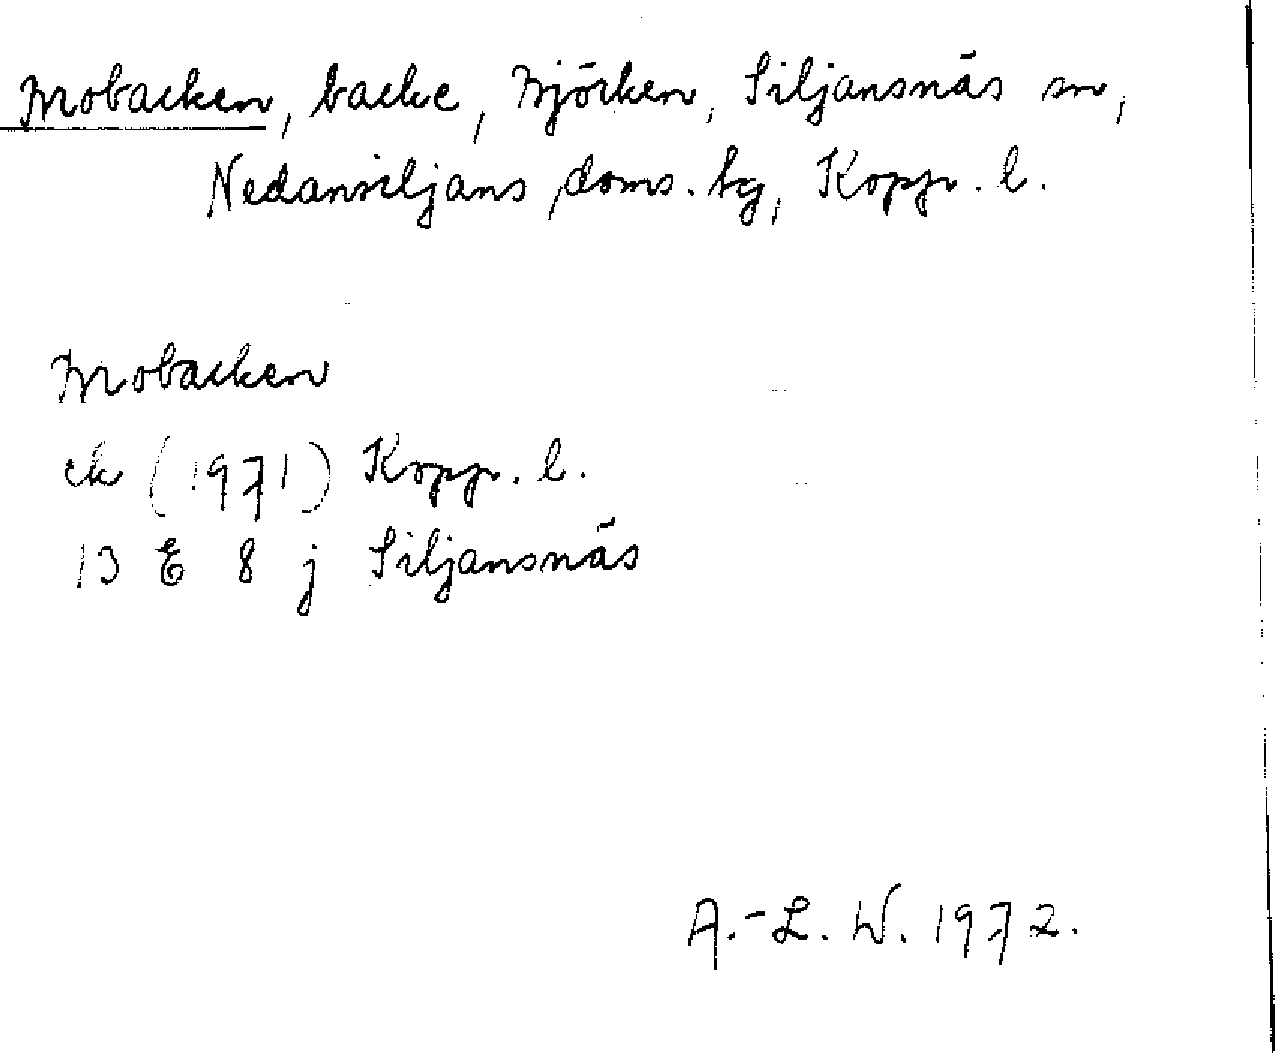 Mobacken, backe, Björken, Siljansnäs sn,
Nedansiljans doms. tg, Kopp. l.
Mobacken
ek (1971) Kopp. l.
13 E 8 j Siljansnäs
A.-L. W. 1972.